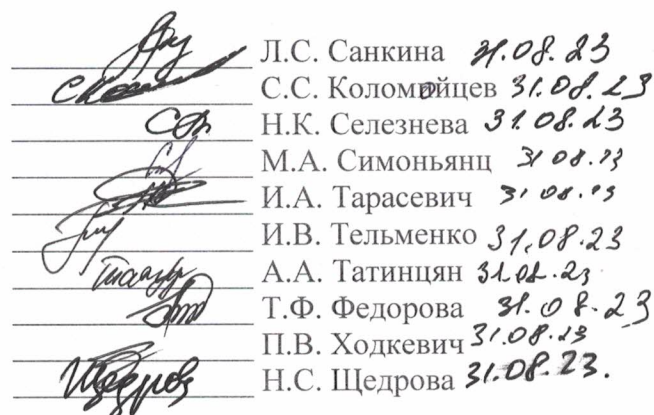 Л.С. Санкина 31.08.23
С.С. Коломойцев 31.08.23
Н.К. Селезнева 31.08.23
М.А. Симоньянц 31 08.23
И.А. Тарасевич 31 08.23
И.В. Тельменко 31,08.23
А.А. Татинцян 31.08.23
Т.Ф. Федорова 31.08.23
П.В. Ходкевич 31.08.23
Щедрова Н.С. Щедрова 31.08.23.